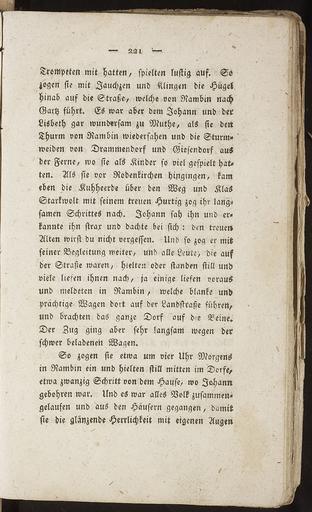 — 221 —
Trompeten mit hatten, spielten lustig auf. So
zogen sie mit Jauchzen und Klingen die Hügel
hinab auf die Straße, welche von Rambin nach
Garz führt. Es war aber dem Johann und der
Lisbeth gar wundersam zu Muthe, als sie den
Thurm von Rambin wiedersahen und die Sturm-
weiden von Drammendorf und Giesendorf aus
der Ferne, wo sie als Kinder so viel gespielt hat-
ten. Als sie vor Rodenkirchen hingingen, kam
eben die Kuhheerde über den Weg und Klas
Starkwolt mit seinem treuen Hurtig zog ihr lang-
samen Schrittes nach. Johann sah ihn und er-
kannte ihn strax und dachte bei sich: den treuen
Alten wirst du nicht vergessen. Und so zog er mit
seiner Begleitung weiter, und alle Leute, die auf
der Straße waren, hielten oder standen still und
viele liefen ihnen nach, ja einige liefen voraus
und meldeten in Rambin, welche blanke und
prächtige Wagen dort auf der Landstraße führen,
und brachten das ganze Dorf auf die Beine.
Der Zug ging aber sehr langsam wegen der
schwer beladenen Wagen.
So zogen sie etwa um vier Uhr Morgens
in Rambin ein und hielten still mitten im Dorfe,
etwa zwanzig Schritt von dem Hause, wo Johann
gebohren war. Und es war alles Volk zusammen-
gelaufen und aus den Häusern gegangen, damit
sie die glänzende Herrlichkeit mit eigenen Augen